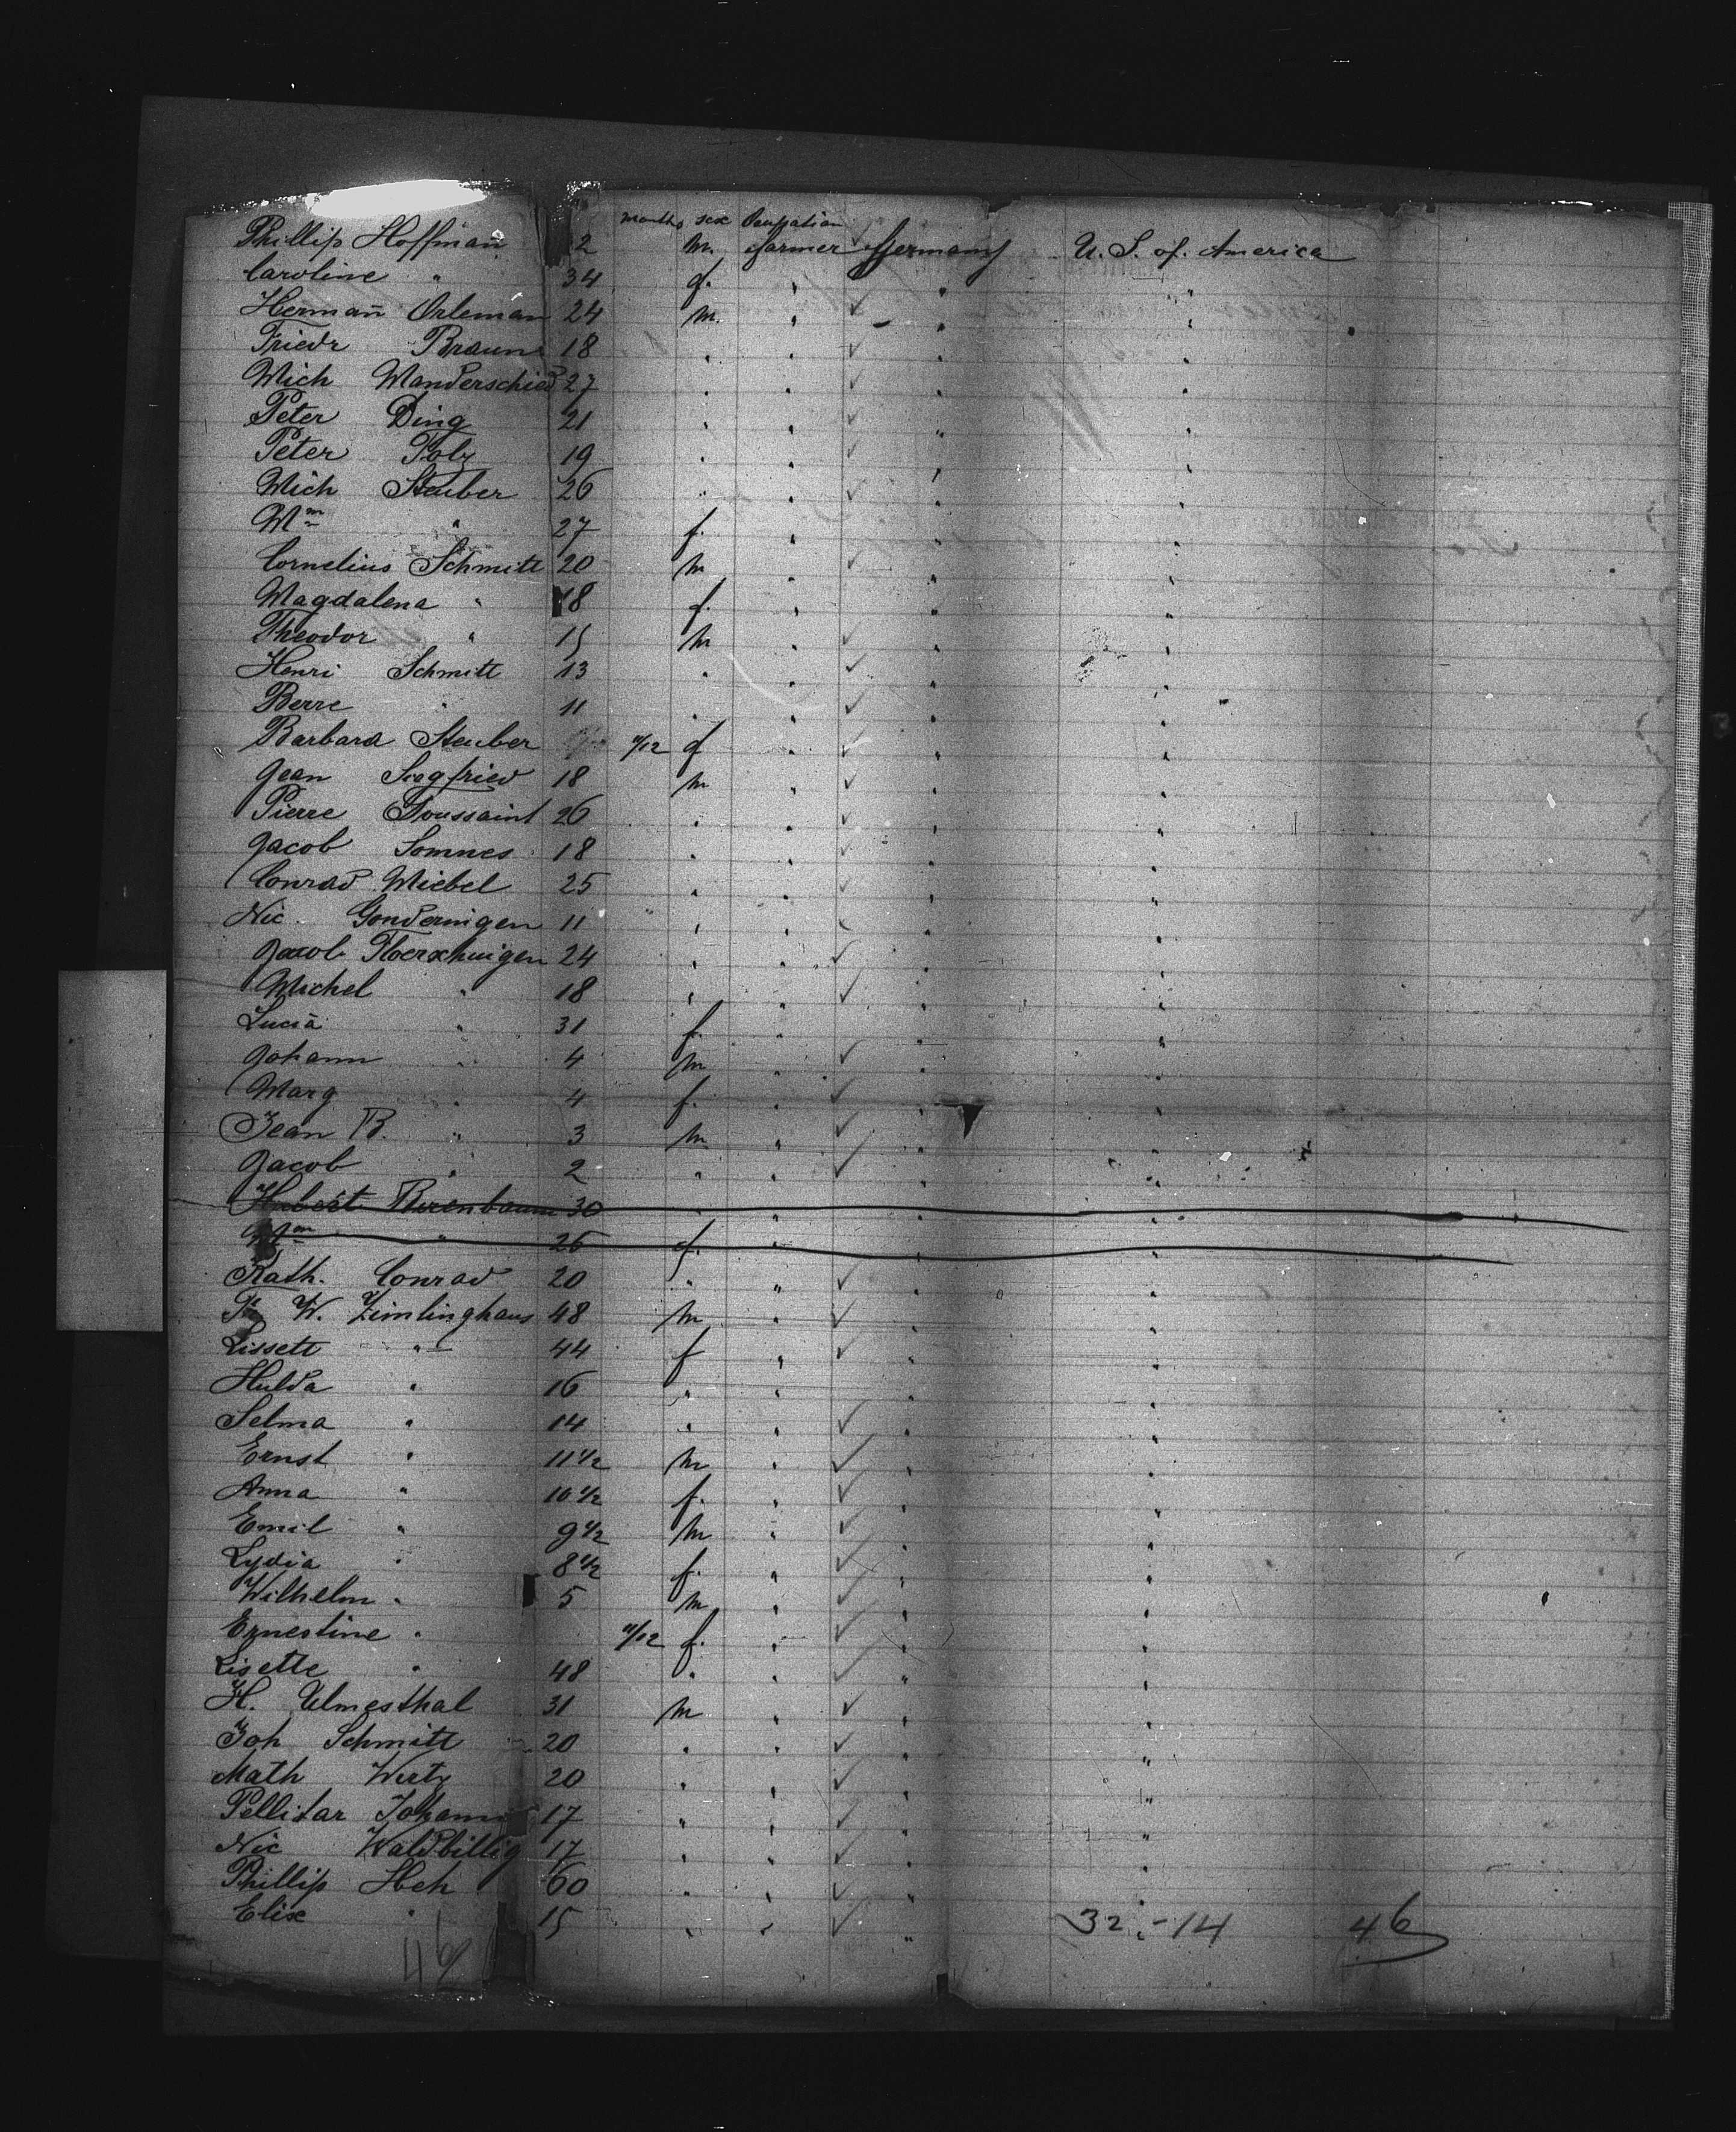 months sex Occupation
Phillip Hoffman 2 m. farmer Germany U. S. of. America
Caroline " 34 f. " " "
Herman Orleman 24 m. " " "
Friedr Braun 18 " " " "
Mich Manderschied 27 " " " "
Peter Ding 21 " " " "
Peter Polz 19 " " " "
Mich Steuber 26 " " " "
Mm " 27 f. " " "
Cornelius Schmitt 20 m " " "
Magdalena " 18 f. " " "
Theodor " 15 m " " "
Henri Schmitt 13 " " " "
Berre " 11 " " " "
Barbara Steuber 11/12 f " " "
Jean Siegfried 18 m " " "
Pierre Toussaint 26 " " " "
Jacob Somnes 18 " " " "
Conrad Miebel 25 " " " "
Nic. Gonderingen 11 " " " "
Jacob Floerschuigen 24 " " " "
Michel " 18 " " " "
Lucia " 31 f. " " "
Johann " 4 m " " "
Marg " 4 f. " " "
Jean B. " 3 m " " "
Jacob " 2 " " " "
Hubert Birenbaum 30 " " " "
Mm " 26 f. " " "
Kath. Conrad 20 " " " "
W. Zimlinghaus 48 m " " "
Lissett " 44 f " " "
Hulda " 16 " " " "
Selma " 14 " " " "
Ernst " 11 1/2 m " " "
Anna " 10 1/2 f. " " "
Emil " 9 1/2 m " " "
Lydia " 8 1/2 f. " " "
Wilhelm " 5 m " " "
Ernestine " 11/12 f. " " "
Lisette " 48 " " " "
H. Ulmesthal 31 m " " "
Joh Schmitt 20 " " " "
Math Wertz 20 " " " "
Pellitar Johann 17 " " " "
Nic Waldbillig 17 " " " "
Phillip Heh 60 " " " "
Elise " 15 " " " "
32.-14 46
46